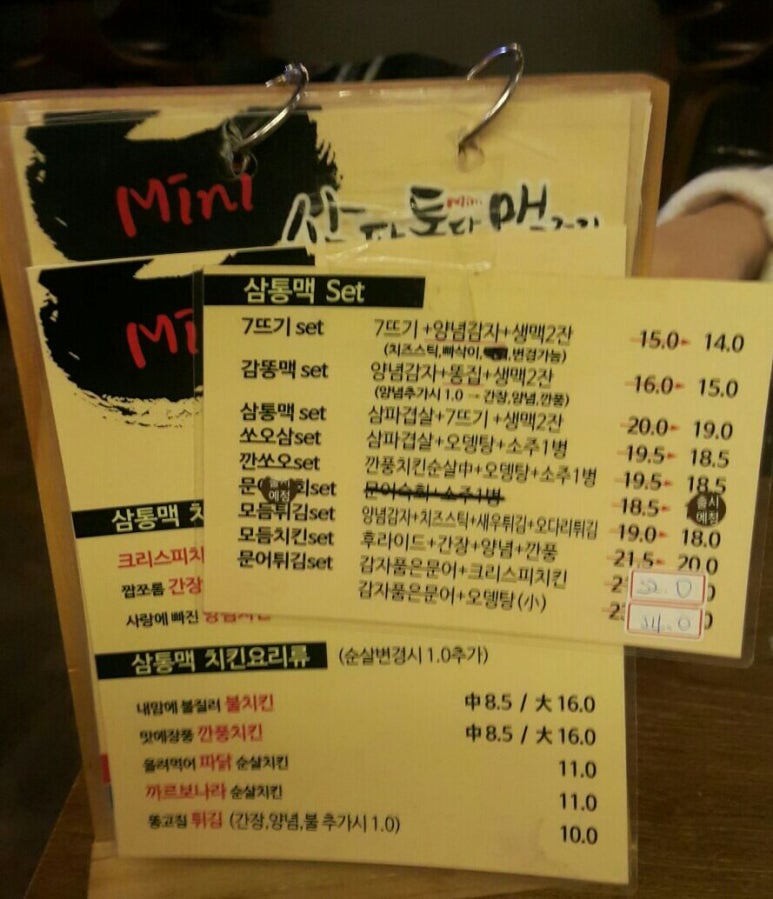 Mini
Mini
삼통맥 Set
7뜨기 set 7뜨기 +양념감자+생맥2잔 15.0 14.0
(치즈스틱,빠삭이, ,변경가능)
감똥맥 set 양념감자+똥집+생맥2잔 16.0 15.0
(양념추가시 1.0 → 간장,양념,깐풍)
삼통맥 set 삼파겹살+7뜨기 +생맥2잔 20.0 19.0
쏘오삼set 삼파겹살+오뎅탕+소주1병 19.5 18.5
깐쏘오set 깐풍치킨순살中+오뎅탕+소주1병 19.5 18.5
문어 회set 문어숙회+소주1병 18.5 출시예정
모듬튀김set 양념감자+치즈스틱+새우튀김+오다리튀김 19.0 18.0
모듬치킨set 후라이드+간장+양념+깐풍 21.5 20.0
문어튀김set 감자품은문어+크리스피치킨
감자품은문어+오뎅탕(小)
삼통맥 치
크리스피치
짭쪼롬 간장
사랑에 빠진 양념치킨
삼통맥 치킨요리류 (순살변경시 1.0추가)
내맘에 불질러 불치킨 中 8.5 / 大 16.0
맛에장풍 깐풍치킨 中 8.5 / 大 16.0
올려먹어 파닭 순살치킨 11.0
까르보나라 순살치킨 11.0
똥고집 튀김 (간장,양념,불 추가시 1.0) 10.0